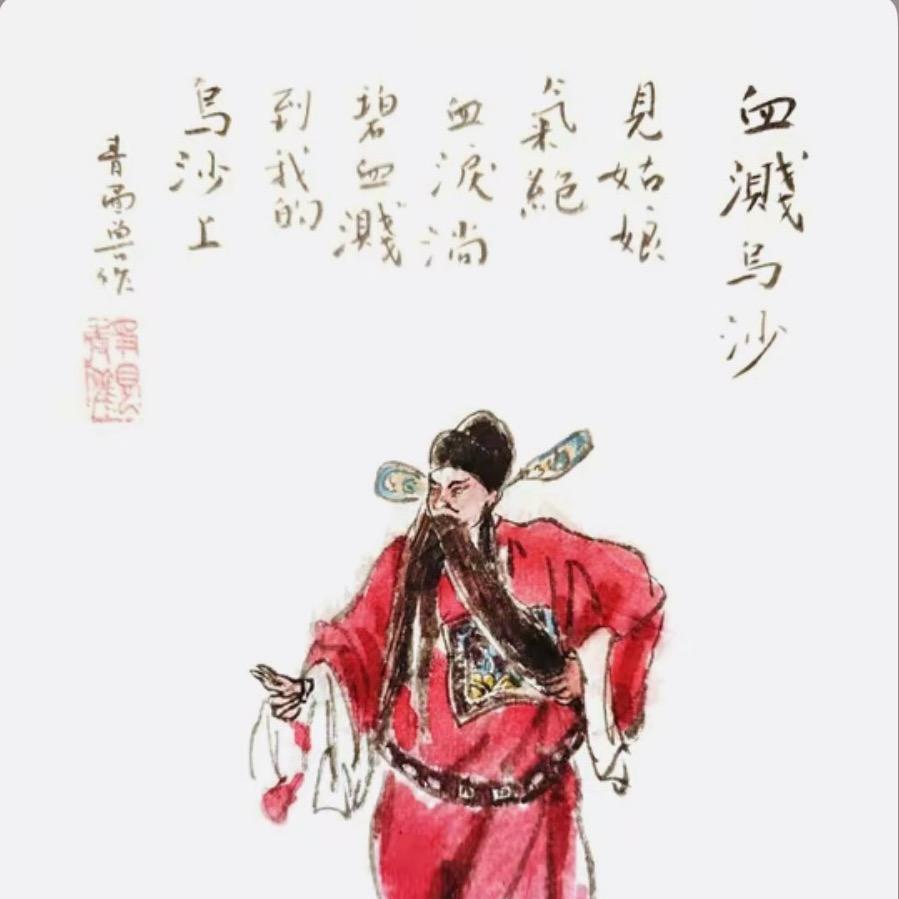 血濺烏沙
見姑娘
氣絕
血淚淌
碧血濺
到我的
烏沙上